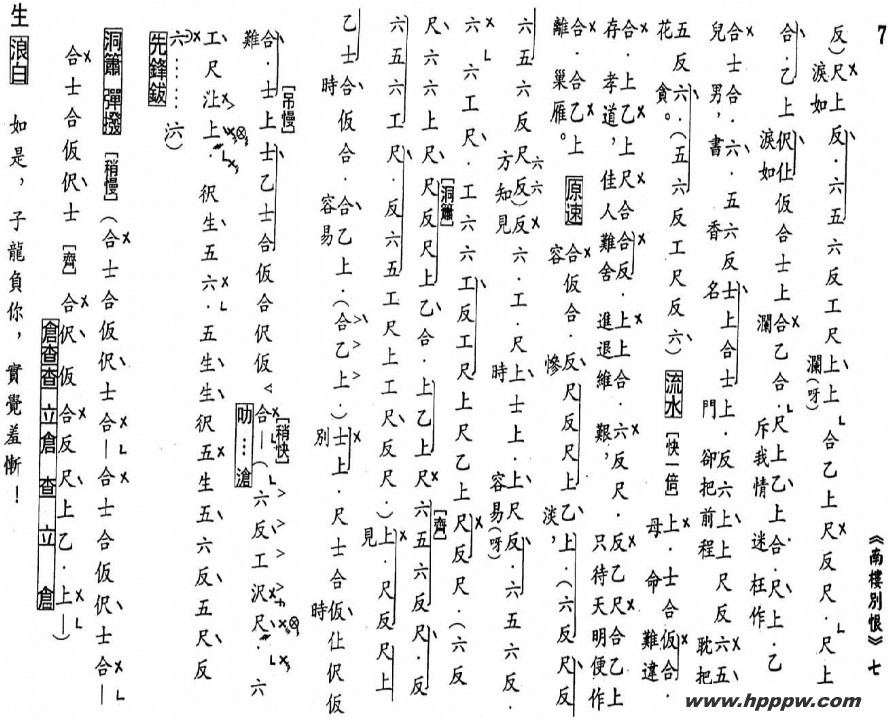 7
《南樓別恨》 七
反)尺上反．六五六反工尺上上合乙上尺反尺．尺上
淚如 瀾(呀)
合．乙上伬仩仮合士上合乙合．尺上乙上合．尺上．乙
淚如 瀾 斥我情 迷 枉作
合士合．六．五六反士上合士上．反六上上尺反六五
兒 男，書 香名 門 卻把前程 耽把
五反六．(五六反工尺反六) 流水 [快一倍] 上．士合仮合．
花 貪。 母 命 難違
合．上乙上尺合合反．上上合．六反尺．反乙尺合乙上
存 孝道，佳人難舍 進退維 艱， 只待天明便作
合．合乙上 原速 合仮合．反尺反尺上乙上．(六反尺反
離 巢雁。 容 慘 淡，
六五六反尺反)反六．工．尺上士上．上尺反．六五六反．
六六
方知見 時 容易(呀)
六 六工尺．工六六工反工尺上尺乙上尺反尺．(六反
[洞簫]
尺．六六上尺尺反尺上乙合．上乙上尺六五六反尺．反
[齊]
六五六工尺．反六五工尺上工尺反尺．)上．尺反尺上
見
乙士合仮合．合乙上．(合乙上．)士上．尺士合仮仩伬仮
時 容易 別 時
[吊慢] [稍快]
合．士上士乙士合仮合伬仮 合—(六反工沢尺．六
難 叻…滄
工尺沚上．𢓜生五六．五生生𢓜五生五六反五尺反
六……六)
先鋒鈸
洞簫 彈撥 [稍慢] (合士合仮伬士合—合士合仮伬士合—
合士合仮伬士 [齊] 合伬仮合反尺上乙．上—)
倉查查 立倉 查 立 倉
生 浪白 如是，子龍負你，實覺羞慚！
www.hpppw.com